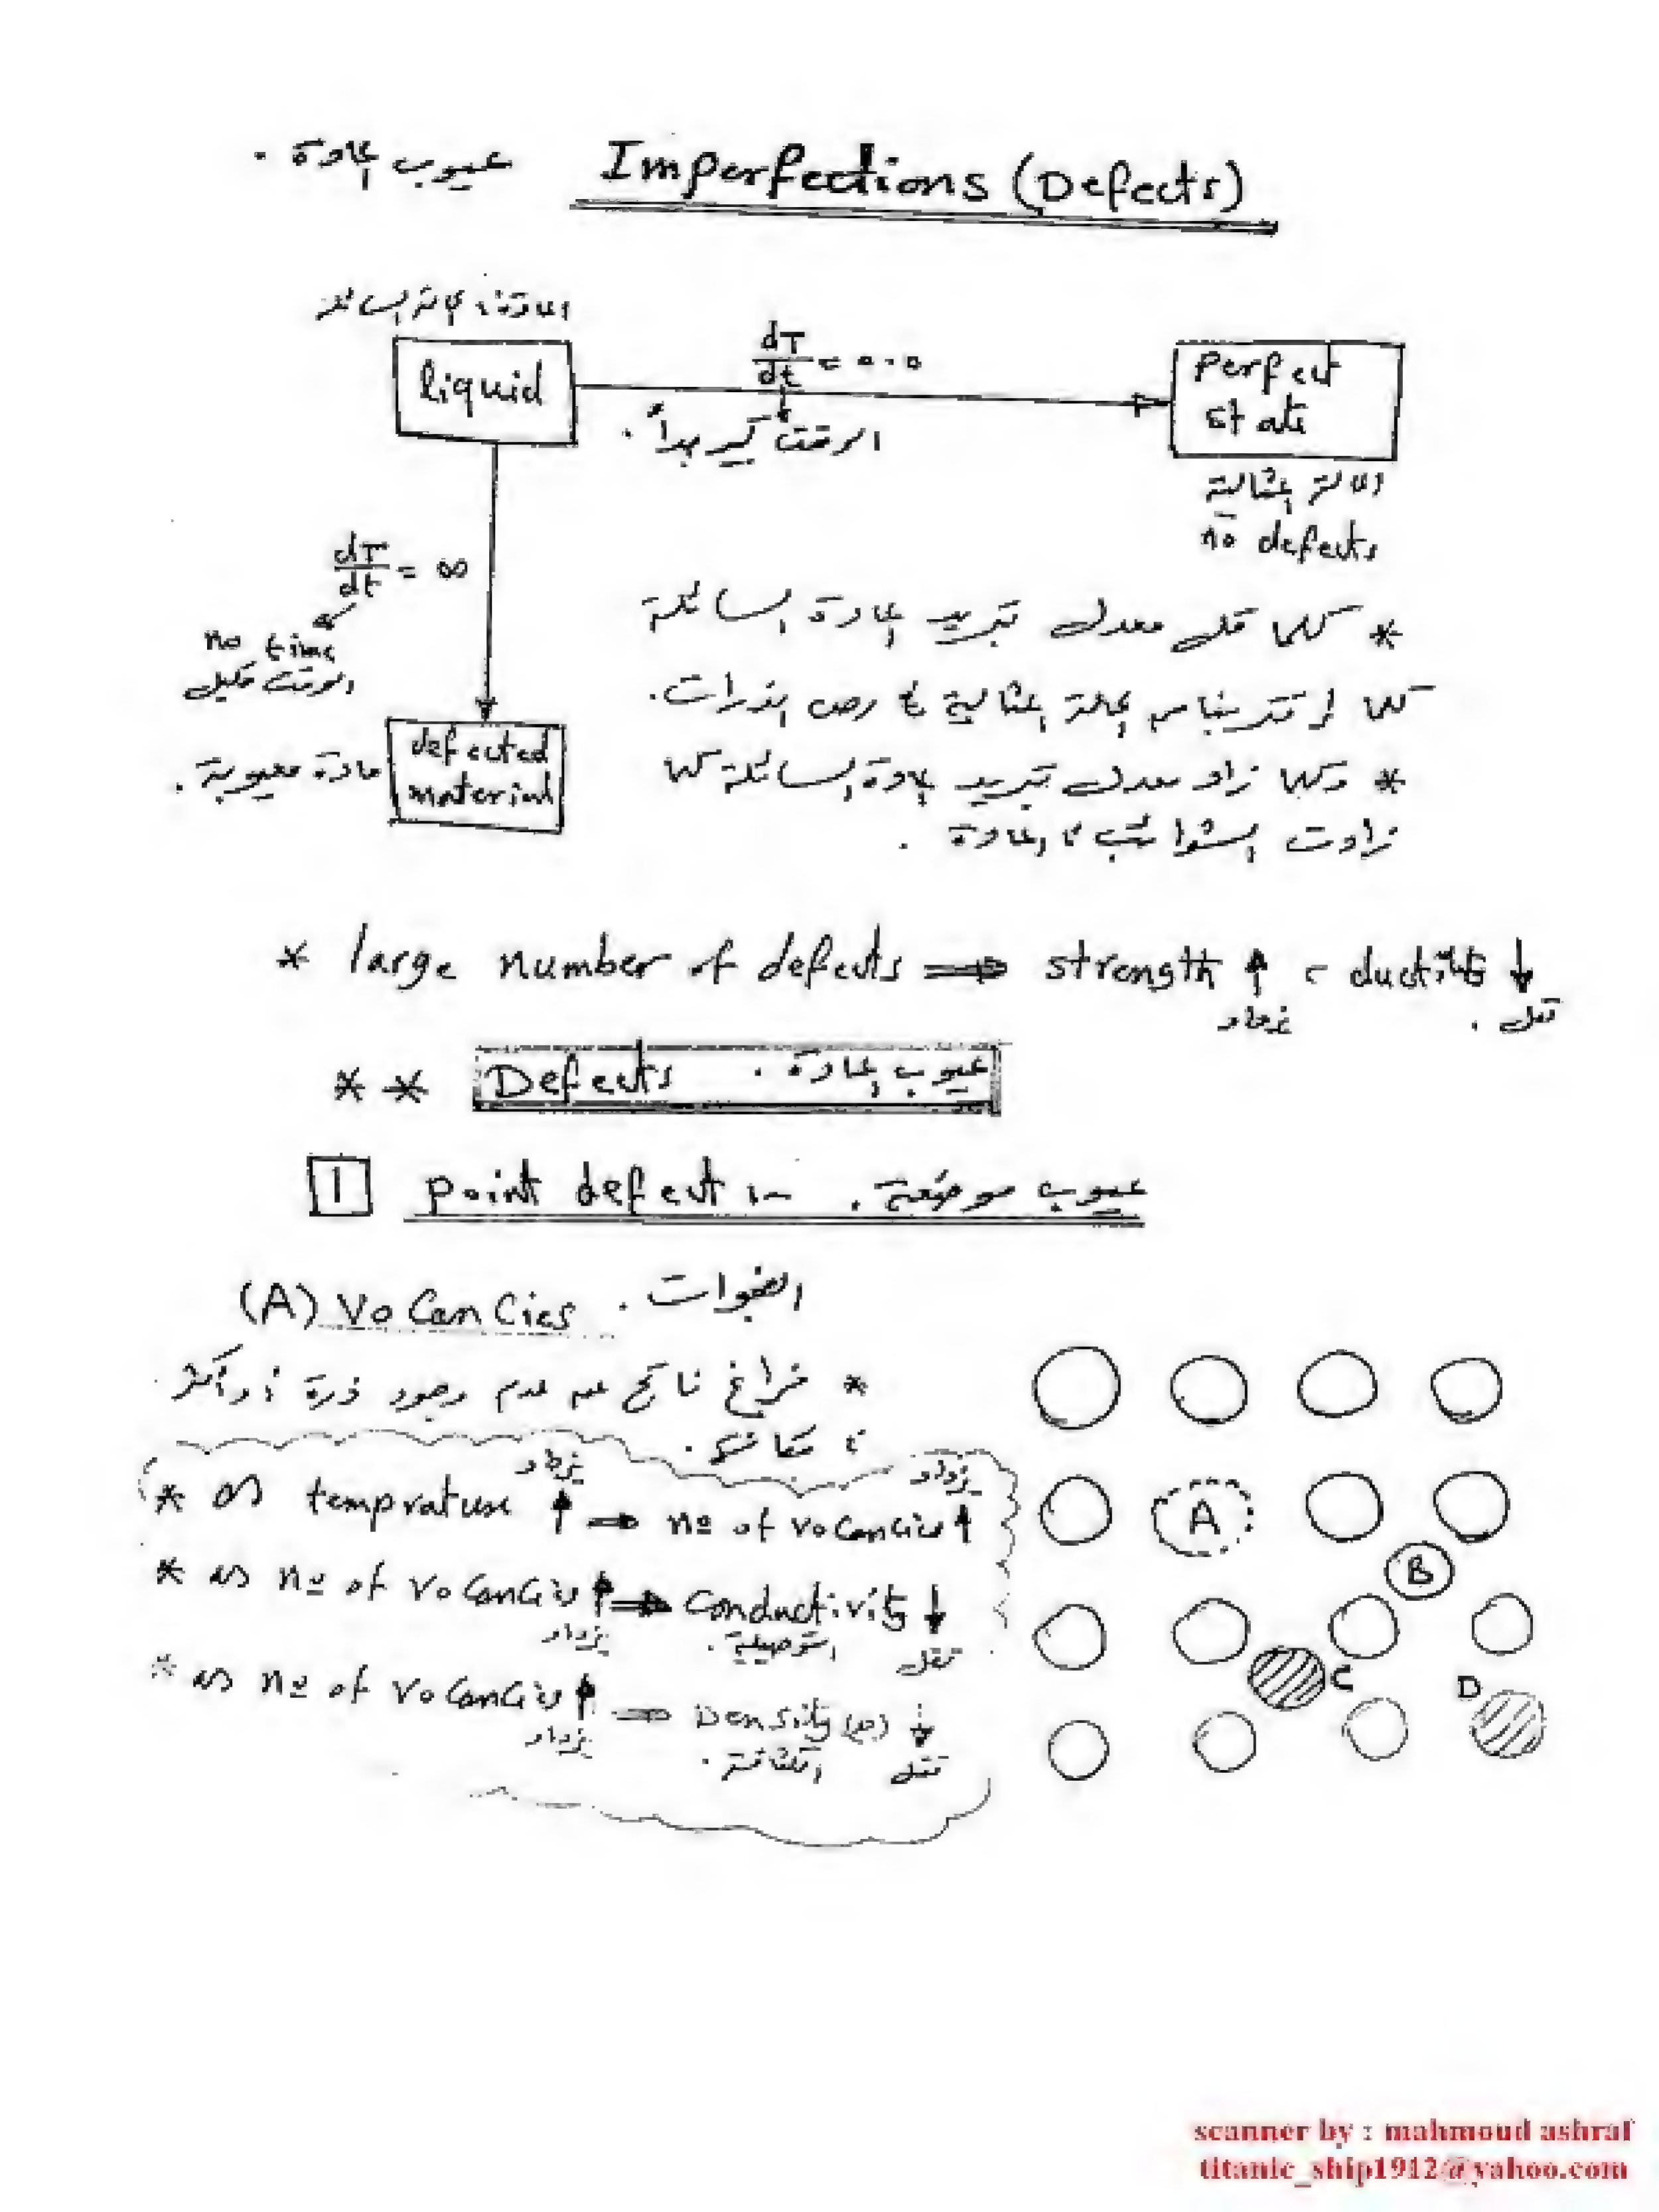 Imperfections (Defects) عيوب المادة .
المادة فى الحالة السائلة
liquid
dT/dt = 0.0
الوقت كبير جداً .
Perfect state
الحالة المثالية
no defects
dT/dt = ∞
no time
الوقت قليل
defected material
مادة معيوبة .
* كلما قل معدل تبريد المادة السائلة
كلما اقتربنا من الحالة المثالية فى رص الذرات .
* وكلما زاد معدل تبريد المادة السائلة كلما
زادت الشوائب فى المادة .
* large number of defects ⇒ strength ↑ ، ductility ↓
تزداد تقل .
** Defects عيوب المادة .
1 point defect :- عيوب موضعية .
(A) Vocancies . الفجوات
* فراغ ناتج عن عدم وجود ذرة أو أكثر
فى مكانها .
يزداد يزداد
* as temprature ↑ ⇒ no of vocancies ↑
* as no of vocancies ↑ ⇒ Conductivity ↓
يزداد التوصيلية . تقل
* as no of vocancies ↑ ⇒ Density (ρ) ↓
يزداد الكثافة . تقل
A
B
C
D
scanner by : mahmoud ashraf
titanic_ship1912@yahoo.com